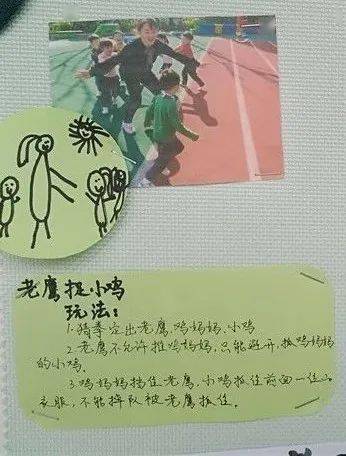 老鹰捉小鸡
玩法：
1.猜拳定出老鹰,鸡妈妈,小鸡
2.老鹰不允许推鸡妈妈,只能避开,抓鸡妈妈
的小鸡.
3.鸡妈妈挡住老鹰,小鸡抓住前面一位
衣服,不能掉队被老鹰抓住.